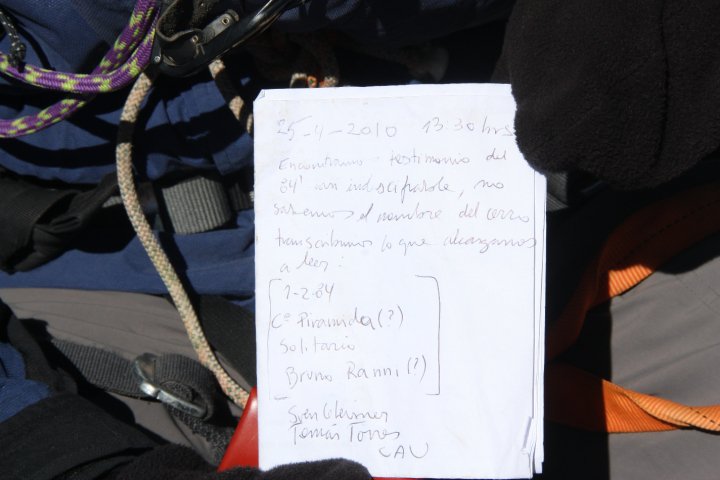 25-4-2010 13:30 hrs
Encontramos testimonio del
84' casi indescifrable, no
sabemos el nombre del cerro
transcribimos lo que alcanzamos
a leer:
1-2-84
Cº Piramida (?)
Solitario
Bruno Ranni (?)
Sven
Tomás Torres
CAU